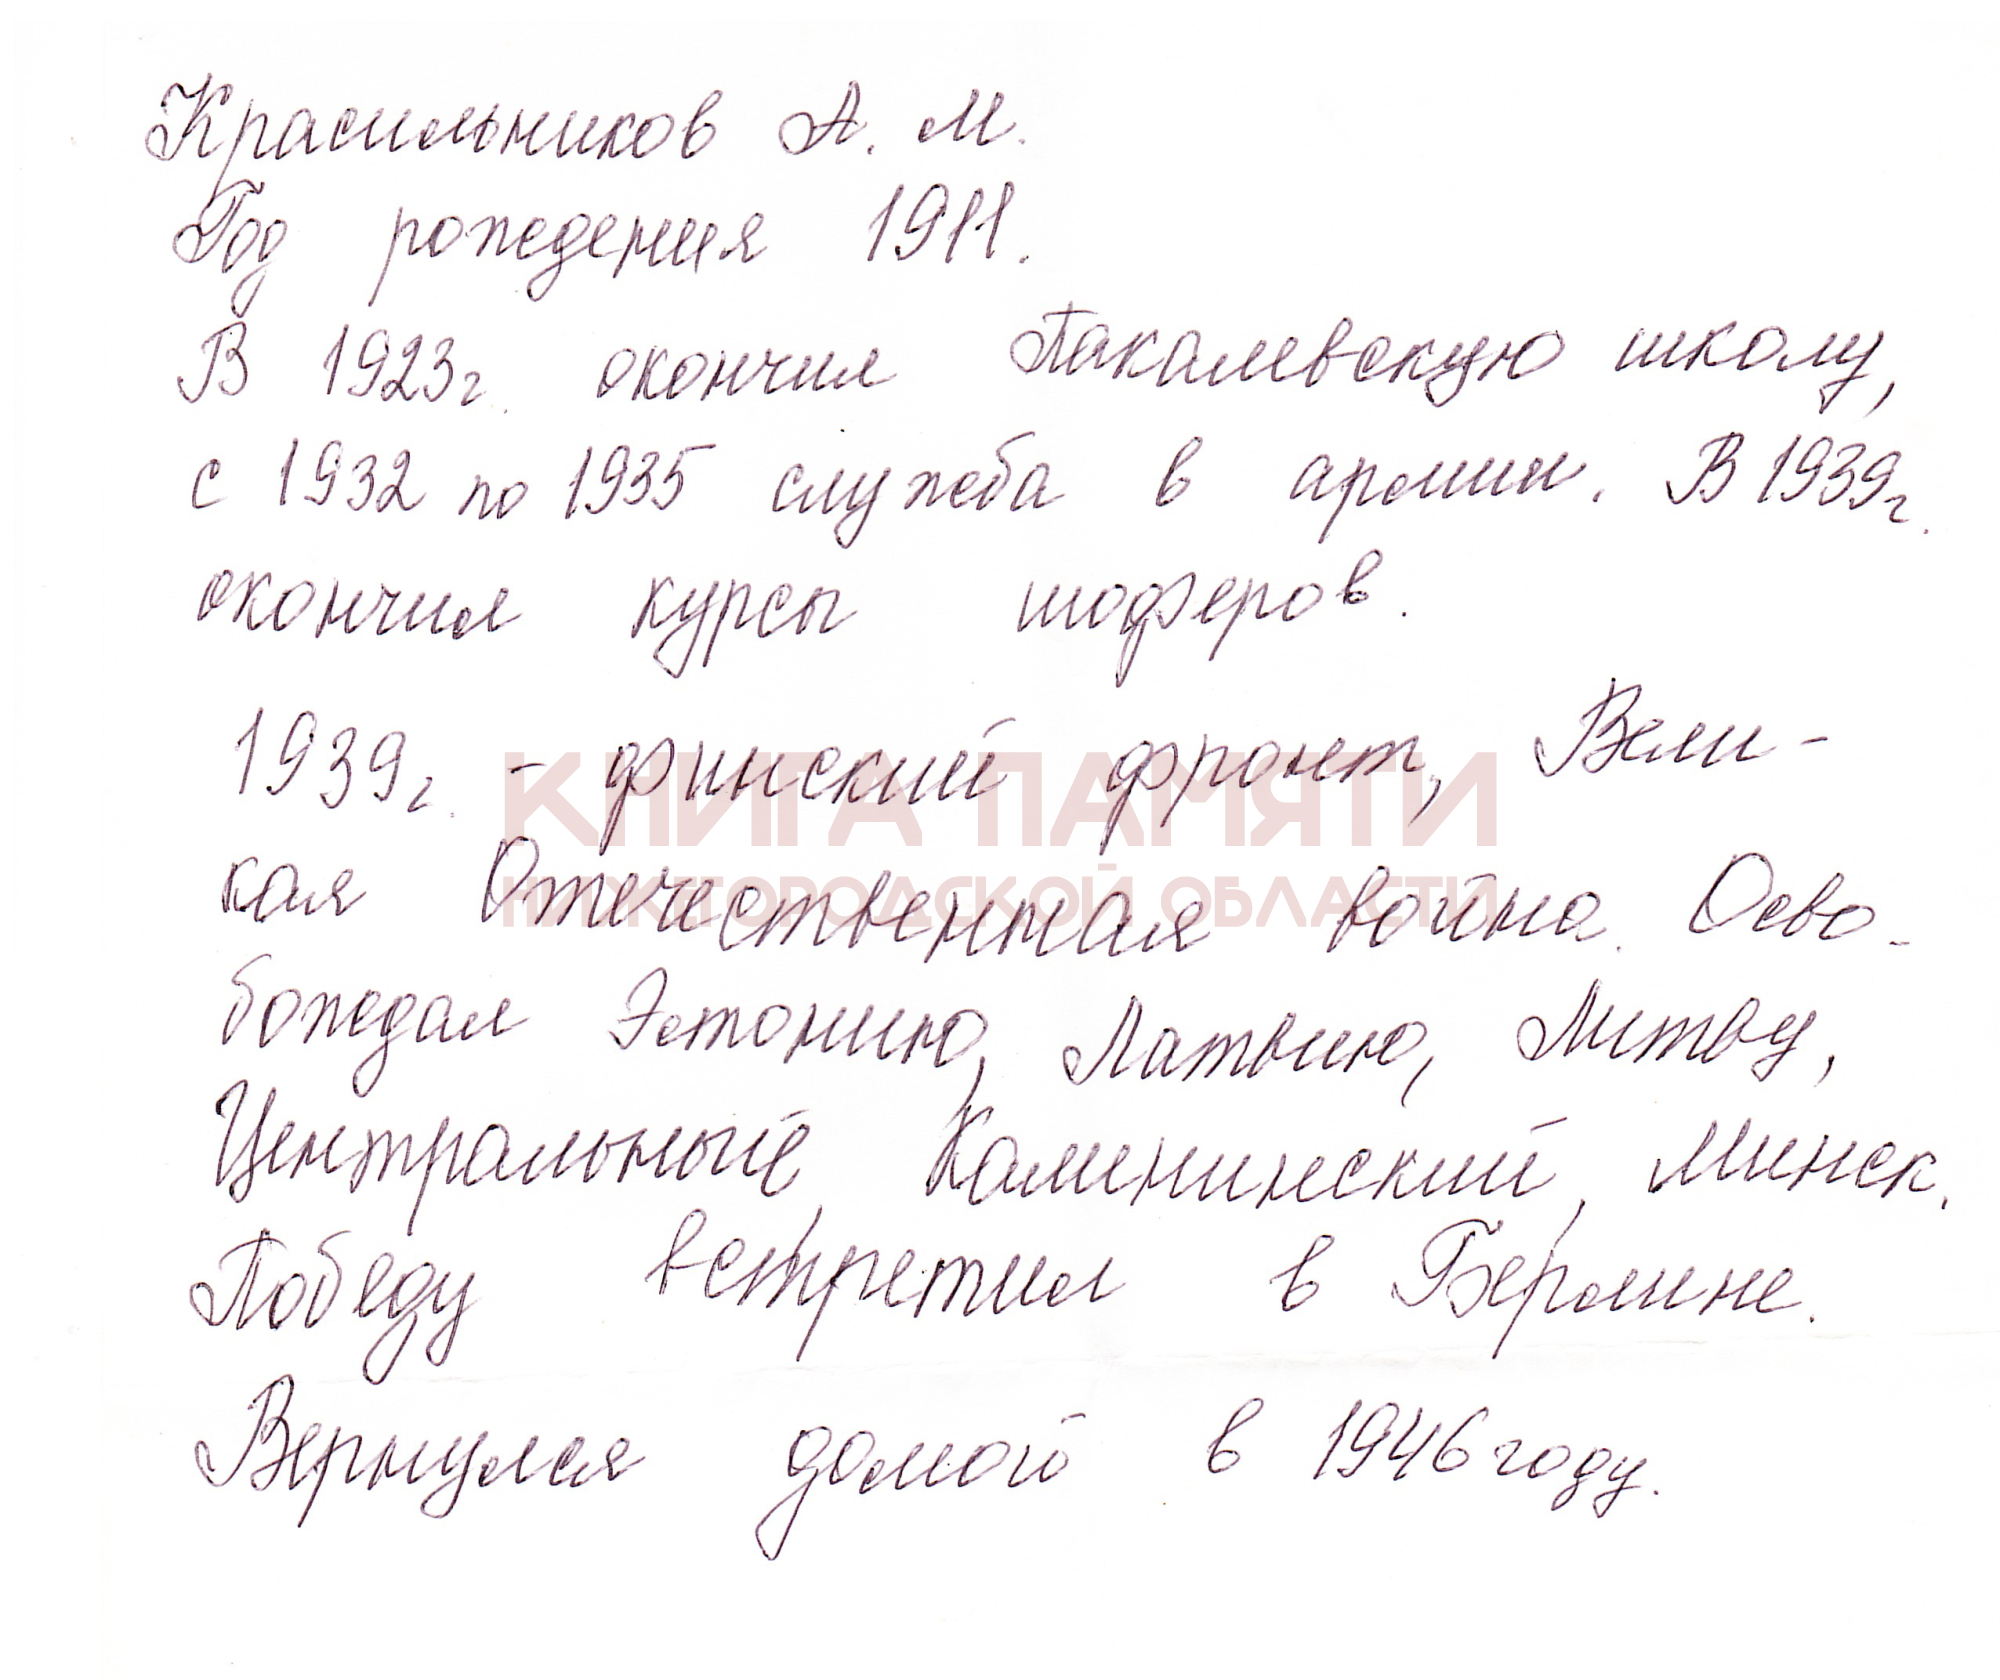 Красильников А. М.
Год рождения 1911.
В 1923г. окончил Пакалевскую школу,
с 1932 по 1935 служба в армии. В 1939г.
окончил курсы шоферов.
1939г. - финский фронт, Вели-
кая Отечественная война. Осво-
бождал Эстонию, Латвию, Литву,
Центральный, Калининский, Минск.
Победу встретил в Берлине.
Вернулся домой в 1946 году.
КНИГА ПАМЯТИ
НИЖЕГОРОДСКОЙ ОБЛАСТИ